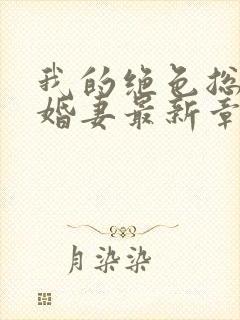 我的绝色总
婚妻最新章
月染染